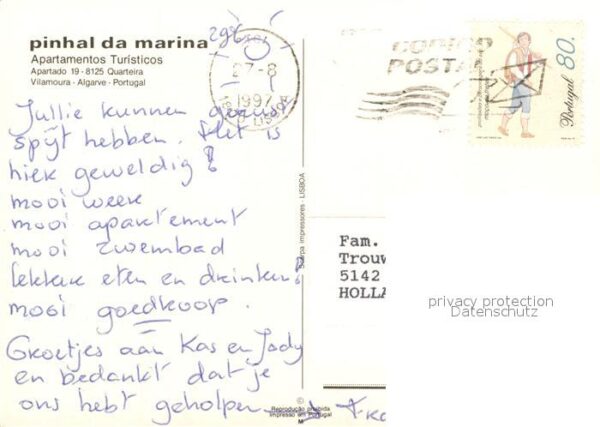 pinhal da marina
Apartamentos Turísticos
Apartado 19 - 8125 Quarteira
Vilamoura - Algarve - Portugal
27-8
1997
CODIGO
POSTAL
80.
Portugal
Jullie kunnen gerust
spijt hebben. Het is
hier geweldig!
mooi weer
mooi apartement
mooi zwembad
lekker eten en drinken!
mooi goedkoop.
Groetjes aan Kas en Jody
en bedankt dat je
ons hebt geholpen
Impressores - LISBOA
Fam.
Trouw
5142
HOLLA
privacy protection
Datenschutz
Reprodução proibida
Impresso em Portugal
M